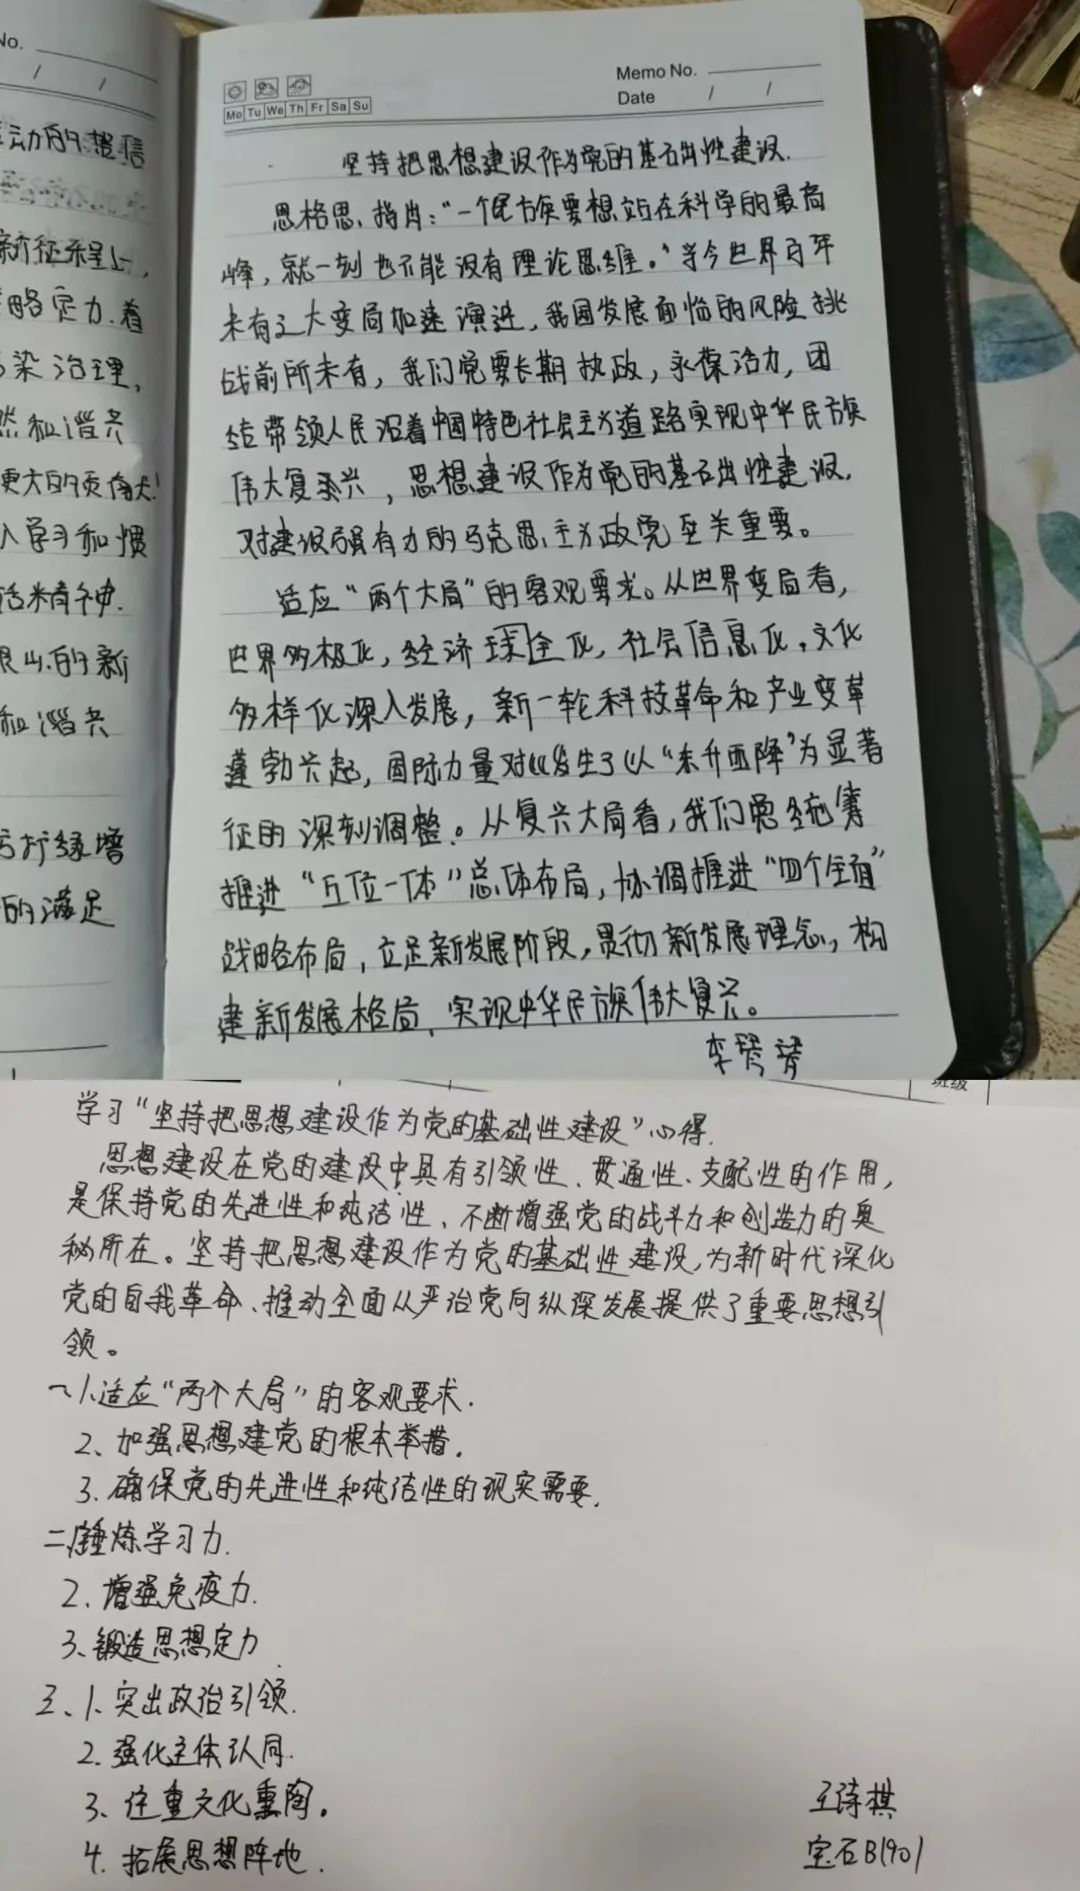 No.
/ /
动的
新征程上,
略定力.着
染治理,
然和谐共
更大的贡献!
入学习和惯
话精神.
的新
和谐共
绿增
的满足
Memo No.
Mo Tu We Th Fr Sa Su
Date / /
坚持把思想建设作为党的基础性建设.
恩格思.指出:“一个民族要想站在科学的最高
峰,就一刻也不能没有理论思维。”当今世界百年
未有之大变局加速演进,我国发展面临的风险挑
战前所未有,我们党要长期执政,永葆活力,团
结带领人民沿着中国特色社会主义道路实现中华民族
伟大复兴,思想建设作为党的基础性建设,
对建设强有力的马克思主义政党至关重要。
适应“两个大局”的客观要求。从世界变局看,
世界多极化,经济球全化,社会信息化,文化
多样化深入发展,新一轮科技革命和产业变革
蓬勃兴起,国际力量对比发生了以“东升西降”为显著
征的深刻调整。从复兴大局看,我们党统筹
推进“五位一体”总体布局,协调推进“四个全面”
战略布局,立足新发展阶段,贯彻新发展理念,构
建新发展格局,实现中华民族伟大复兴。
李
班级
学习“坚持把思想建设作为党的基础性建设”心得.
思想建设在党的建设中具有引领性、贯通性、支配性的作用,
是保持党的先进性和纯洁性、不断增强党的战斗力和创造力的奥
秘所在。坚持把思想建设作为党的基础性建设,为新时代深化
党的自我革命、推动全面从严治党向纵深发展提供了重要思想引
领。
一、1.适应“两个大局”的客观要求.
2、加强思想建党的根本举措.
3.确保党的先进性和纯洁性的现实需要.
二、1.锤炼学习力.
2.增强免疫力.
3、锻造思想定力
三、1、突出政治引领.
2.强化主体认同.
3、注重文化熏陶。
4.拓展思想阵地.
王诗棋
宝石B1901